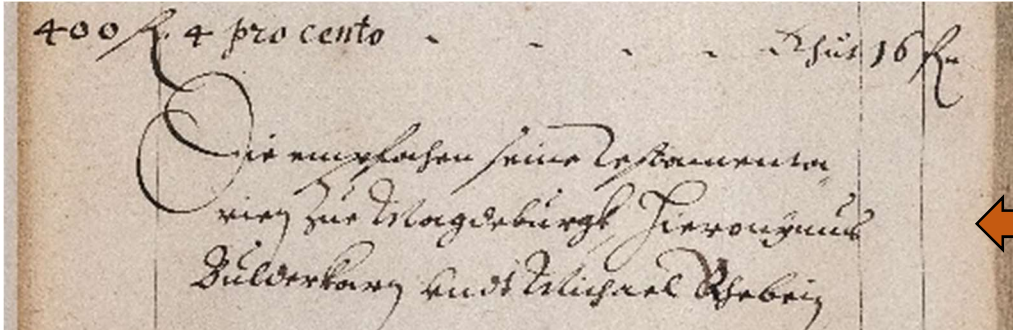 400 fl. 4 pro cento - - - - - thut 16 fl
Die empfahen seine Testamenta
rien zue Magdeburgk, Hieronymus
Bulderkarn vndt Michael Rhebein